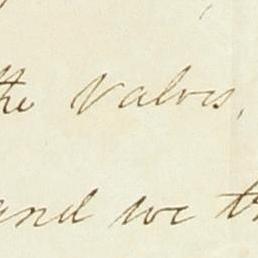 the Valves,
and we th